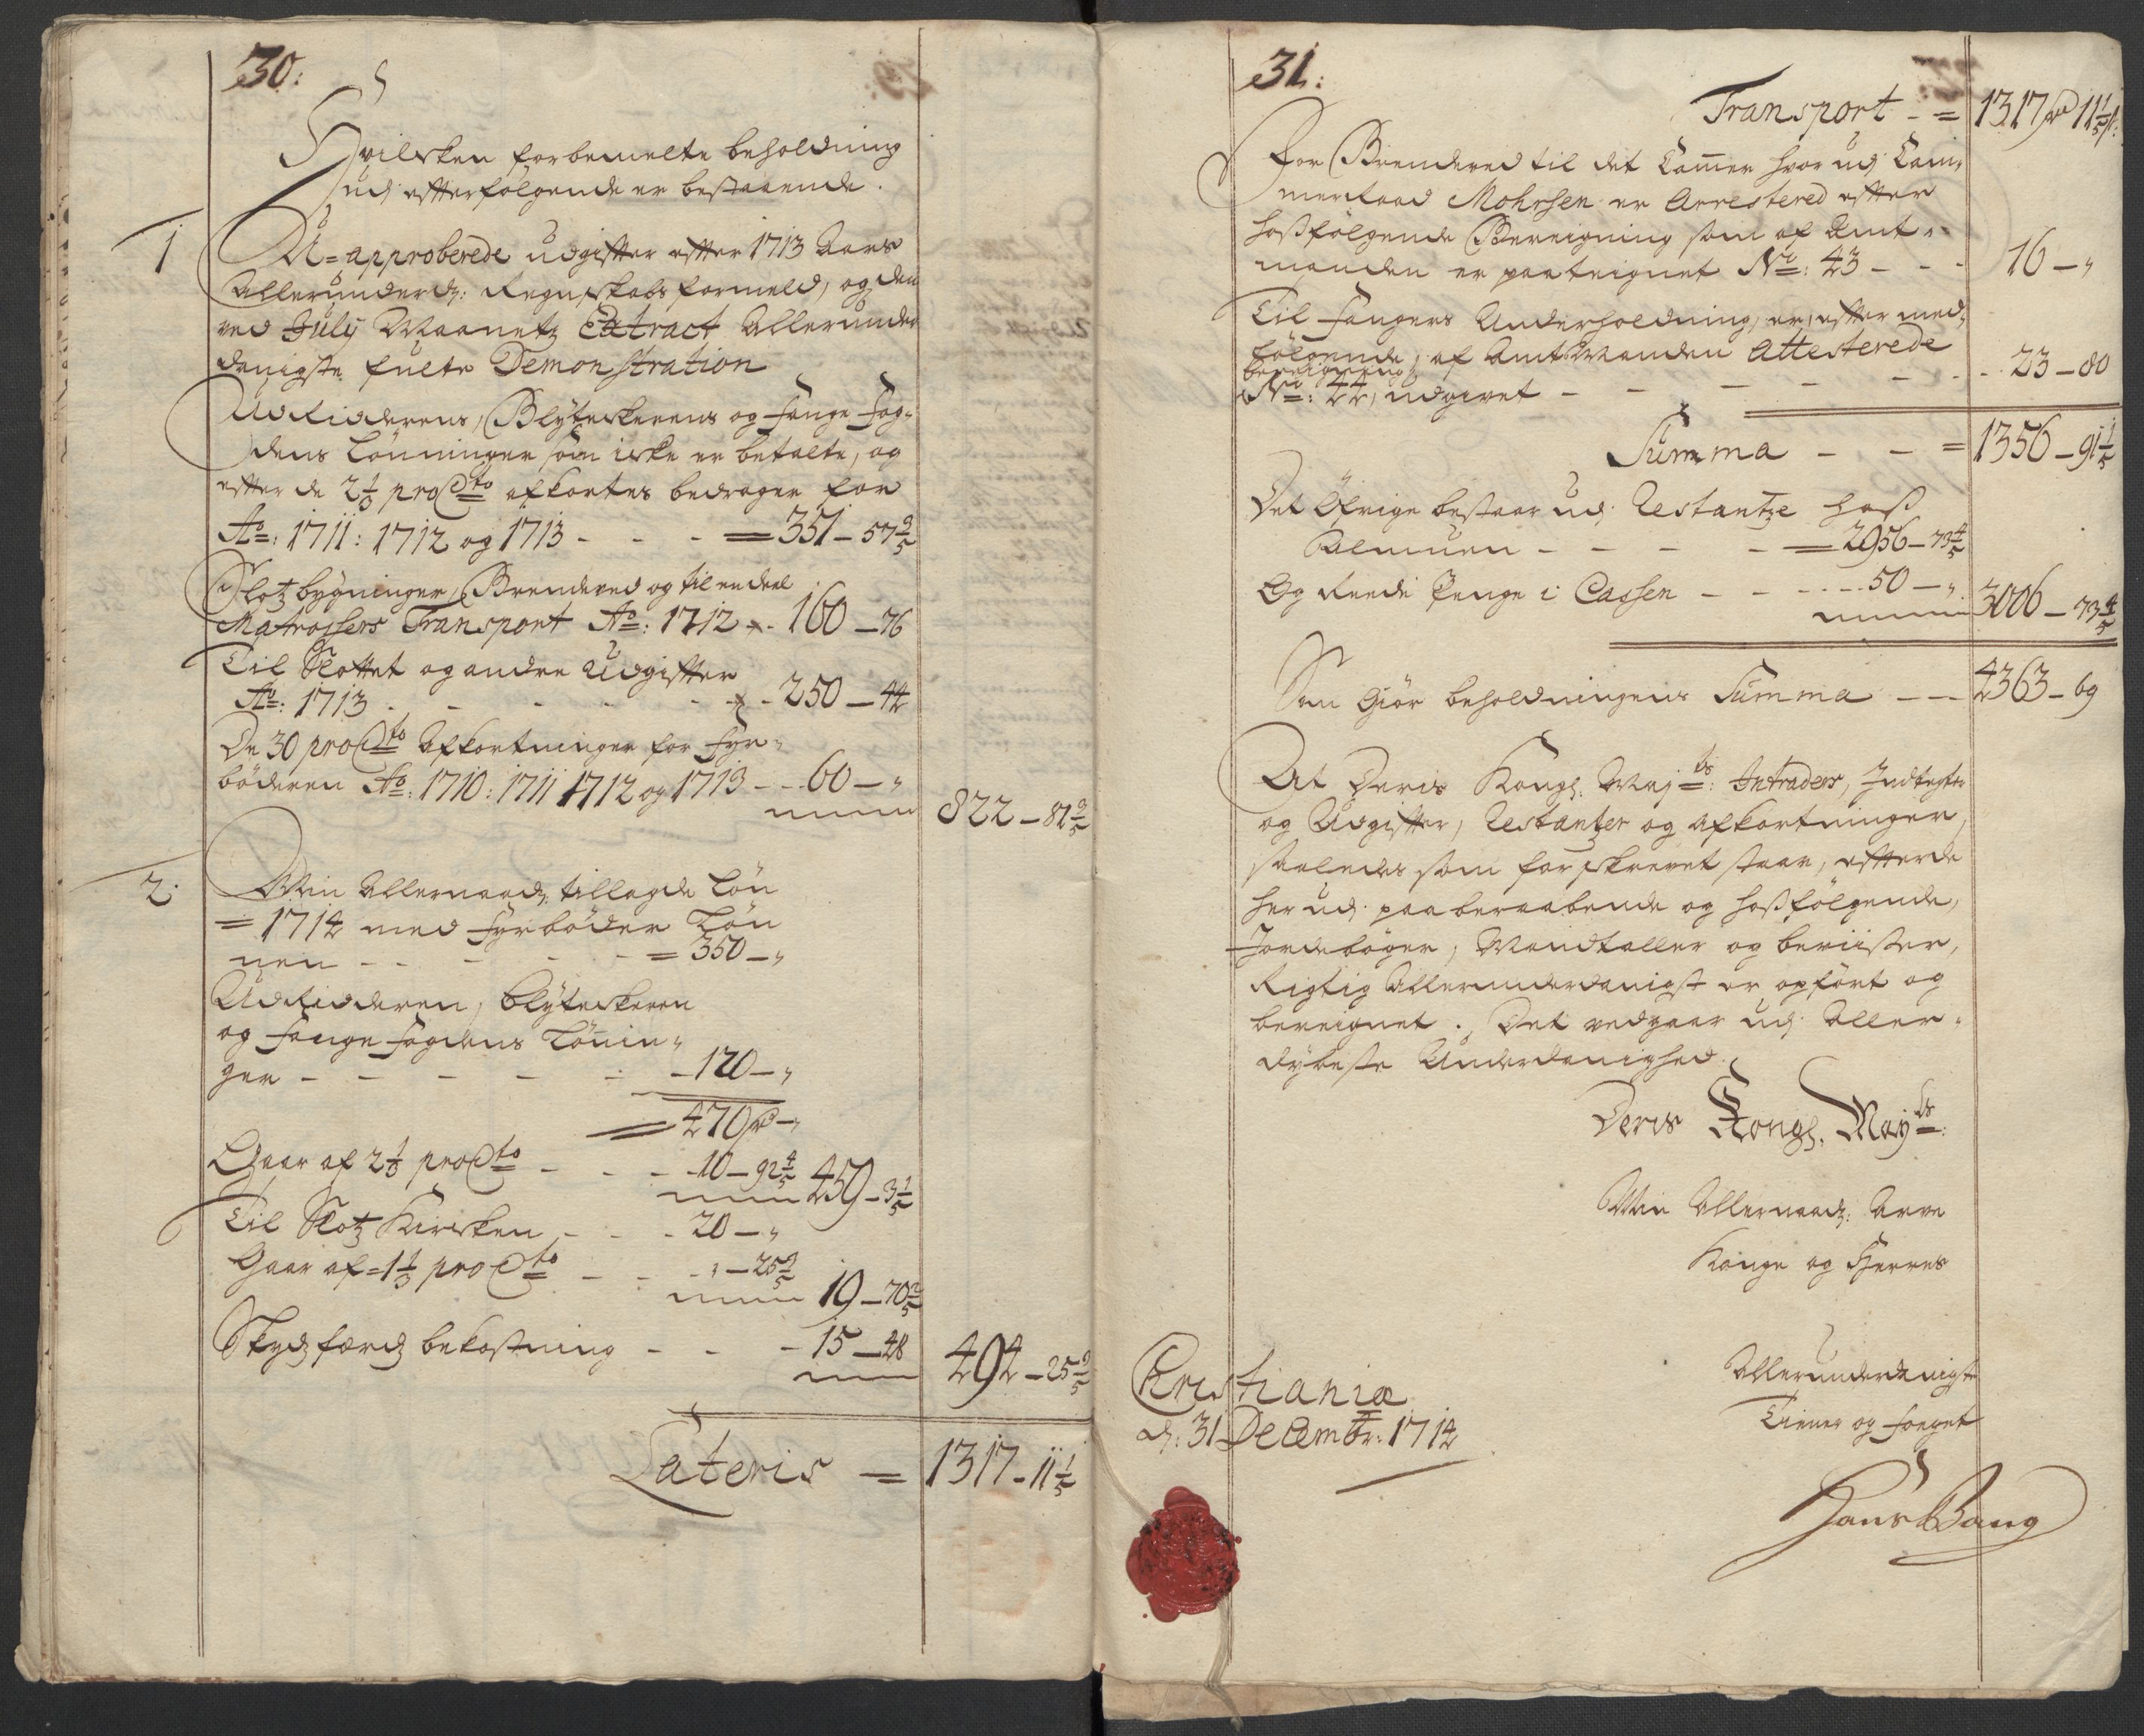 30:
Hvilcken forbemelte beholdning
udj efterfølgende er bestaaende.
1 U=approberede udgifter efter 1713 Aars
Allerunderd: Regnskabs formeld, og den
ved July Maanetz Extract Allerunder
danigste fulte Demonstration
Udriderens, Blytechkerens og Fange Fog-
dens Lønninger som icke er betalte, og
efter de 2⅓ pro Cto afkortes bedrager for
Ao: 1711: 1712 og 1713 - - - = 351 - 57 3/5
Slotz bygninger, Brendeved og til en deel
Matrossers Transport Ao: 1712 - 160 - 76
Til Slottet og andre Udgifter
Ao: 1713 - - - - 250 - 44
De 30 pro Cto Afkortninger for Fyr-
bøderen Ao: 1710: 1711 1712 og 1713 - - 60 - "
822 - 81 3/5
2. Min Allernaad: tillagde Løn
= 1714 med Fyrbøder Løn
nen - - - - = 350 - "
Udrideren, Blytechkeren
og Fange Fogdens Lønnin-
ger - - - - - 120 - "
= 470 rd - "
Gaar af 2⅓ pro Cto - - - 10 - 92 4/5 459 - 3 1/5
Til Slotz Kircken - - - 20 - "
Gaar af = 1⅓ pro Cto - - - " - 25 3/5
19 - 70 2/5
Skydsferdz bekostning - - - 15 - 48
494 - 25 3/5
Lateris = 1317 - 11 1/5
31:
Transport - = 1317 rd 11 1/5 s:
For Brendeved til det Camer hvor udj Cam-
merraad Mohrsen er Arrestered efter
hosfølgende Bereigning som af Amt-
manden er paateignet No: 43 - - - 16 - "
Til Fangers Underholdning, er, efter med-
følgende, af Amtmanden Attesterede
bereigning
No: 44, udgivet - - - - - - 23 - 80
Summa - - = 1356 - 91 1/5
Det Øfrige bestaar udj Restantze hos
Almuen - - - - = 2956 - 73 4/5
Og Reede Penge i Cassen - - - - 50 - "
3006 - 73 4/5
Som Giør beholdningens Summa - - 4363 - 69
At Deris Kongl. Maj ts: Intrader, Indtegter
og Udgifter, Restantzer og afkortninger,
saaledes som forskrevet staar, efter de
her udj paaberaabende og hosfølgende,
Jordebøger, Mandtaller og beviister,
Rigtig Allerunderdanigst er opført og
bereignet. Det vedgaar udj Aller-
dybeste Underdanighed
Deris Kongl. May ts:
Min Allernaad: Arve
Konge og Herres
Allerunderdanigste
Tiener og Foeget
Christianiæ
d: 31 Decembr: 1714
Hans Bang